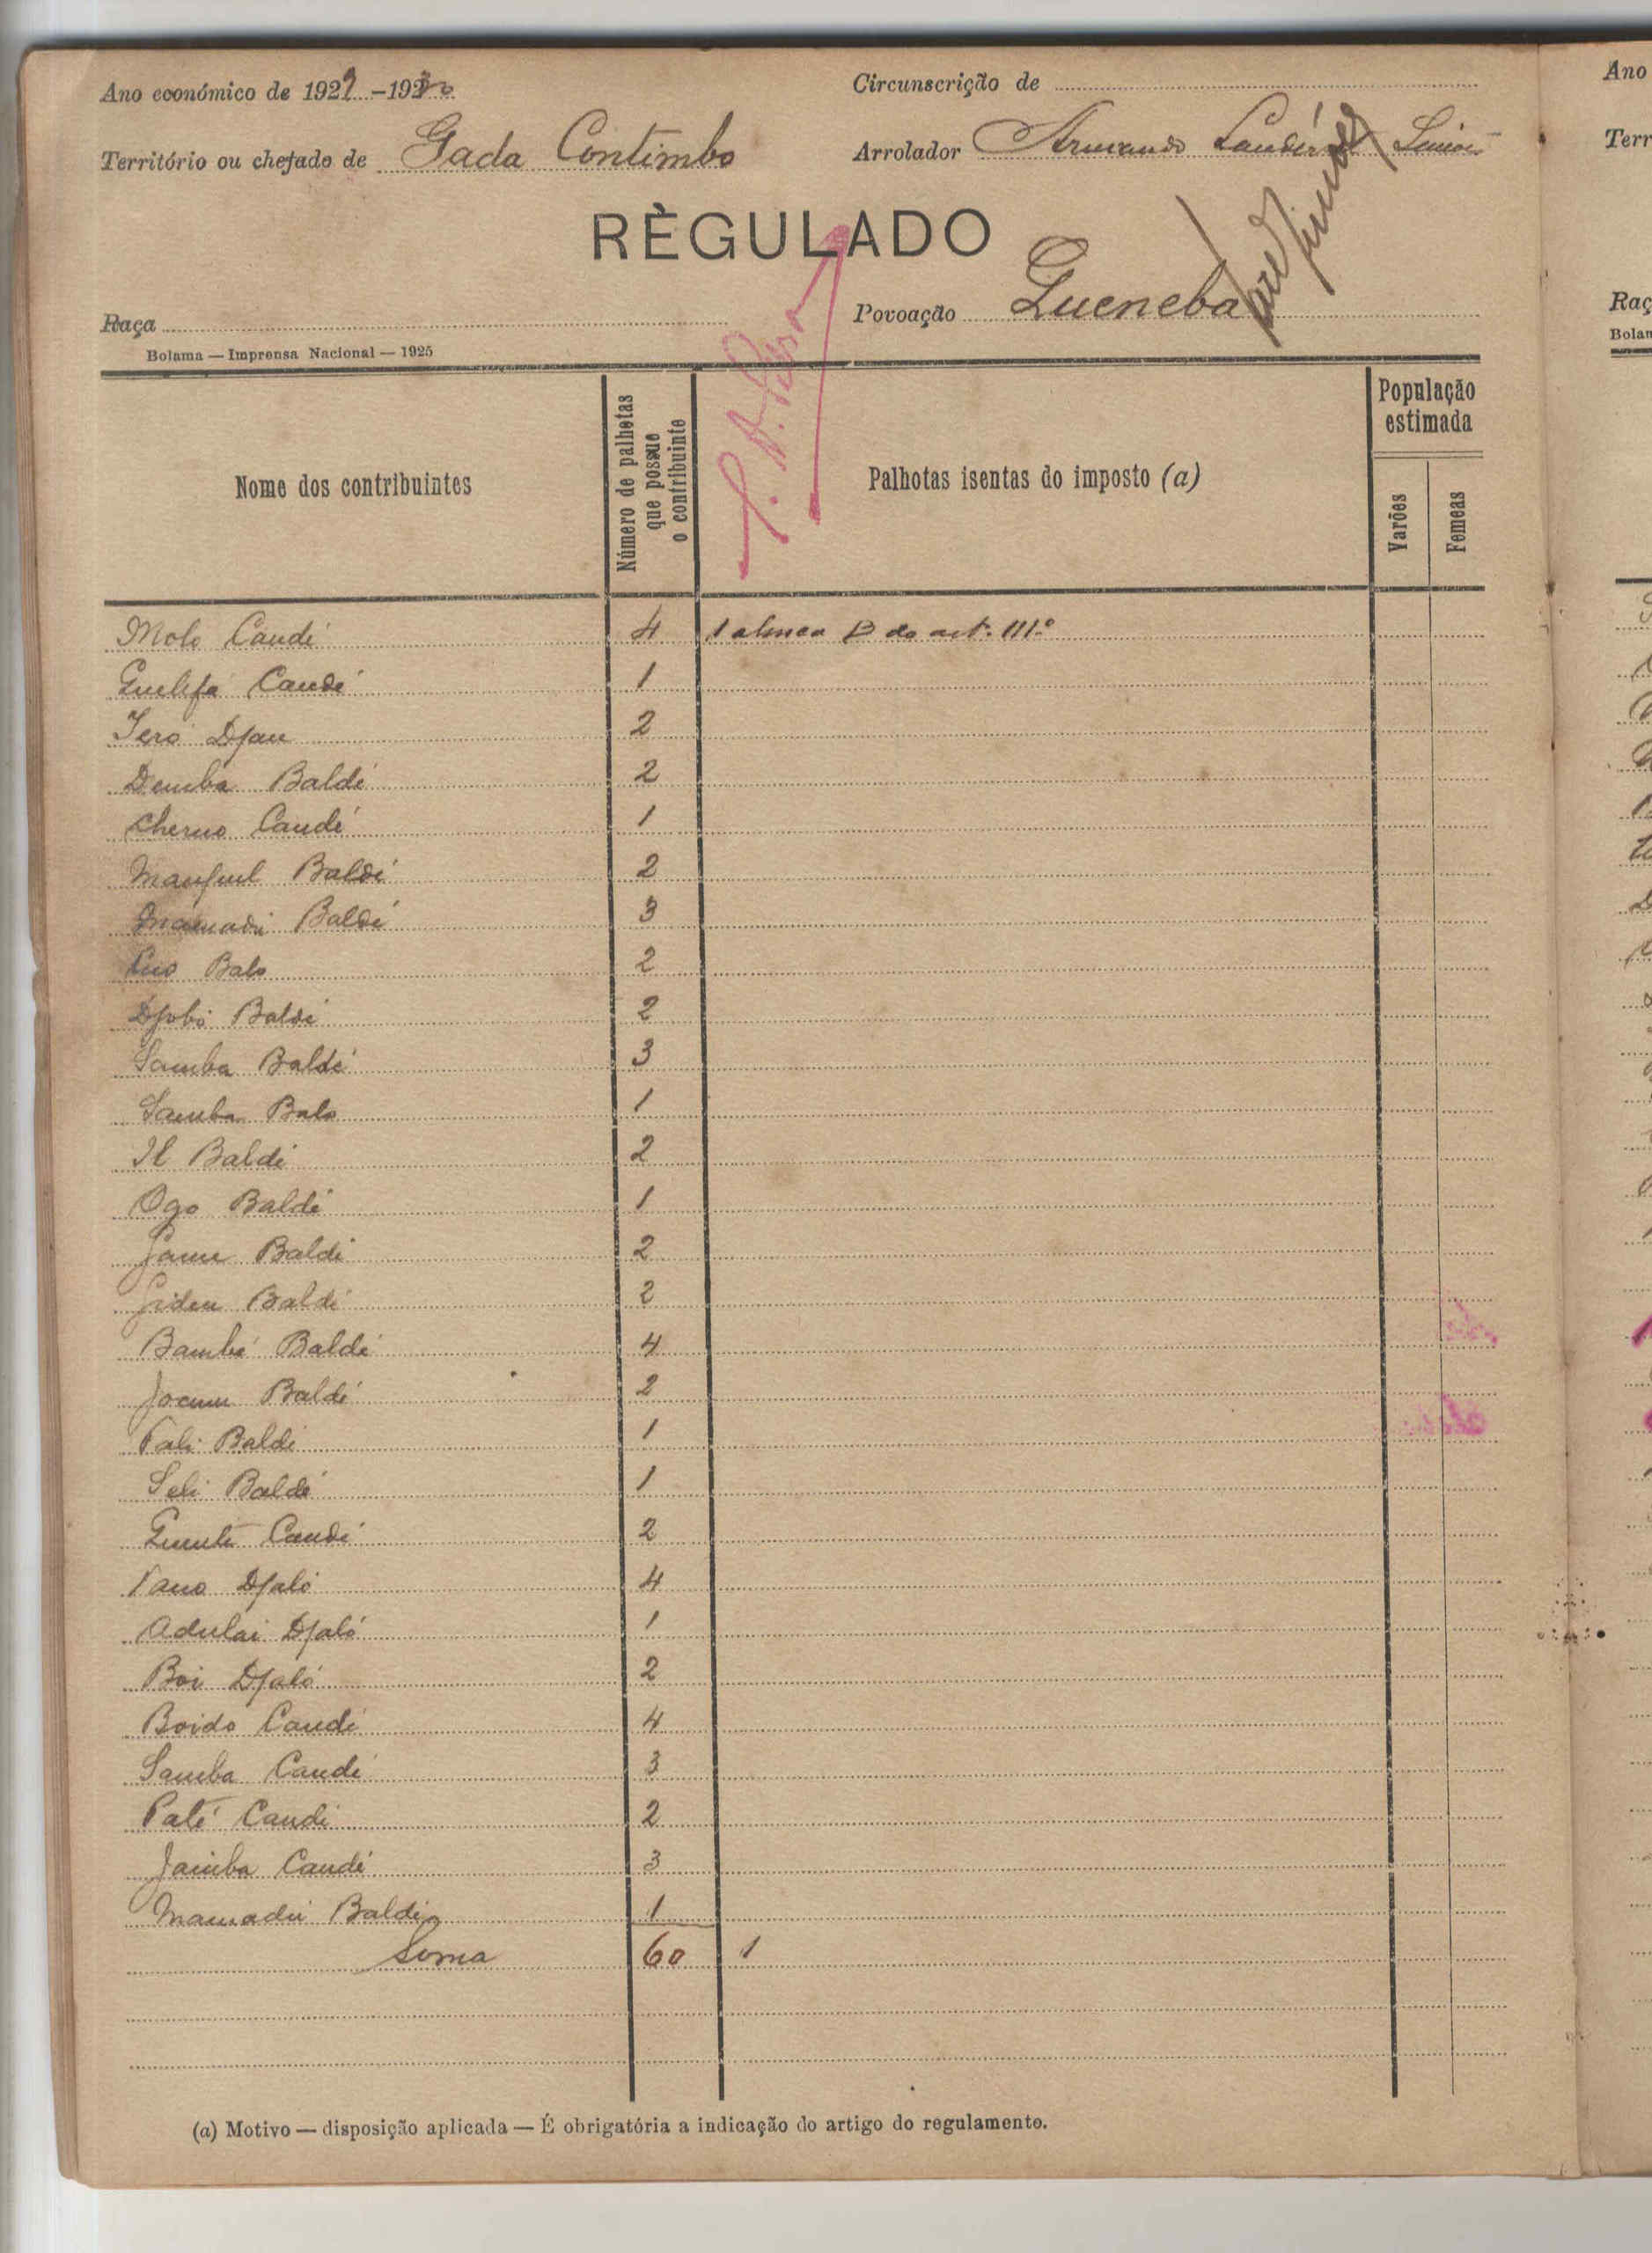 Ano económico de 1929-1930
Circunscrição de
Território ou chefado de Gada Contimbo
Arrolador Armando
RÈGULADO
Povoação Lueneba
Raça
Bolama — Imprensa Nacional — 1925
Nome dos contribuintes
Número de palhetas que possue o contribuinte
Palhotas isentas do imposto (a)
População estimada
Varões
Femeas
Molo Candé 4 1 alinea B do art. 111.º
Candé 1
Iero Djau 2
Demba Baldé 2
Cherno Candé 1
Baldé 2
Mamadú Baldé 3
Balo 2
Djobó Baldé 2
Samba Baldé 3
Samba Balo 1
Il Baldé 2
Ogo Baldé 1
Baldé 2
Baldé 2
Bambé Baldé 4
Baldé 2
Baldé 1
Seli Baldé 1
Candé 2
Djaló 4
Adulai Djaló 1
Boi Djaló 2
Boido Candé 4
Samba Candé 3
Paté Candé 2
Candé 3
Mamadú Baldé 1
Soma 60 1
(a) Motivo — disposição aplicada — É obrigatória a indicação do artigo do regulamento.
Ano
Terr
Raç
Bolam